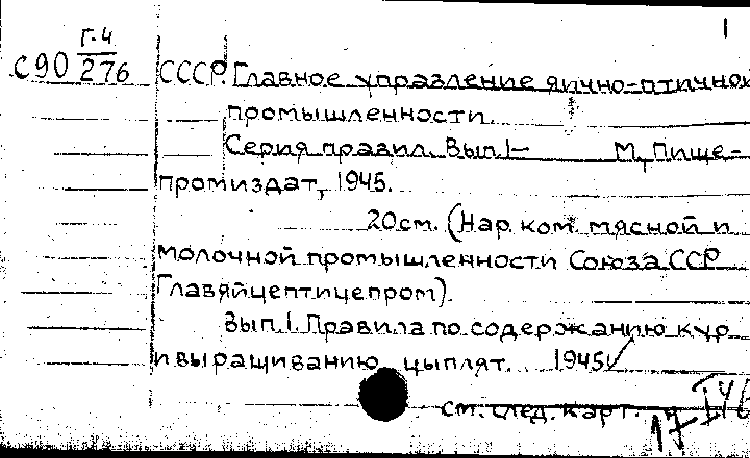 1
Г-4
С90 276 СССР. Главное управление яично-птичной
промышленности.
Серия правил. Вып.1– М., Пище-
промиздат, 1945.
20см. (Нар. ком. мясной и
молочной промышленности Союза ССР
Главяйцептицепром).
Вып.1. Правила по содержанию кур
и выращиванию цыплят. 1945
см. след. карт.